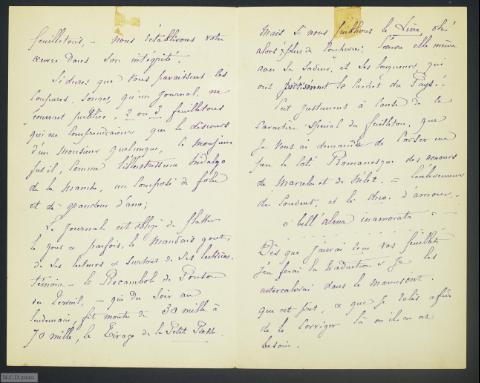 feuilletons, — nous rétablirons votre
œuvre dans son intégrité.
Si dures que vous paraissent les
coupures, songez, qu'un journal, ne
pourrait publier, 2 ou 3 feuilletons
qui ne comprendraient que le discours
d'un Monsieur quelconque, le Monsieur
fut-il, comme l'illustrissime hidalgo
de la Manche, un composé de folie
et de grandeur d'âme;
Le Journal est obligé de flatter
le goût & parfois, le mauvais goût,
de ses lecteurs & surtout de ses lectrices.
témoin — le Rocambole de Ponson
du Terrail, — qui du soir au
lendemain, fit monter de 30 mille à
70 mille, le tirage de la Petite Presse
Mais si nous publions le Livre, oh!
alors plus de
avec sa
ont
C'est justement à cause de ce
caractère spécial du feuilleton, que
je vous ai demandé de
sur le côté Romanesque des amours
de — l'enlèvement
du Couvent, et le duo d'amour. —
o bell' alma innamorata —
Dès que j'aurai tous vos feuillets
j'en ferai la traduction & je les
intercalerai dans le manuscrit.
que est prêt, & que je relis afin
de le corriger là où il en est
besoin.